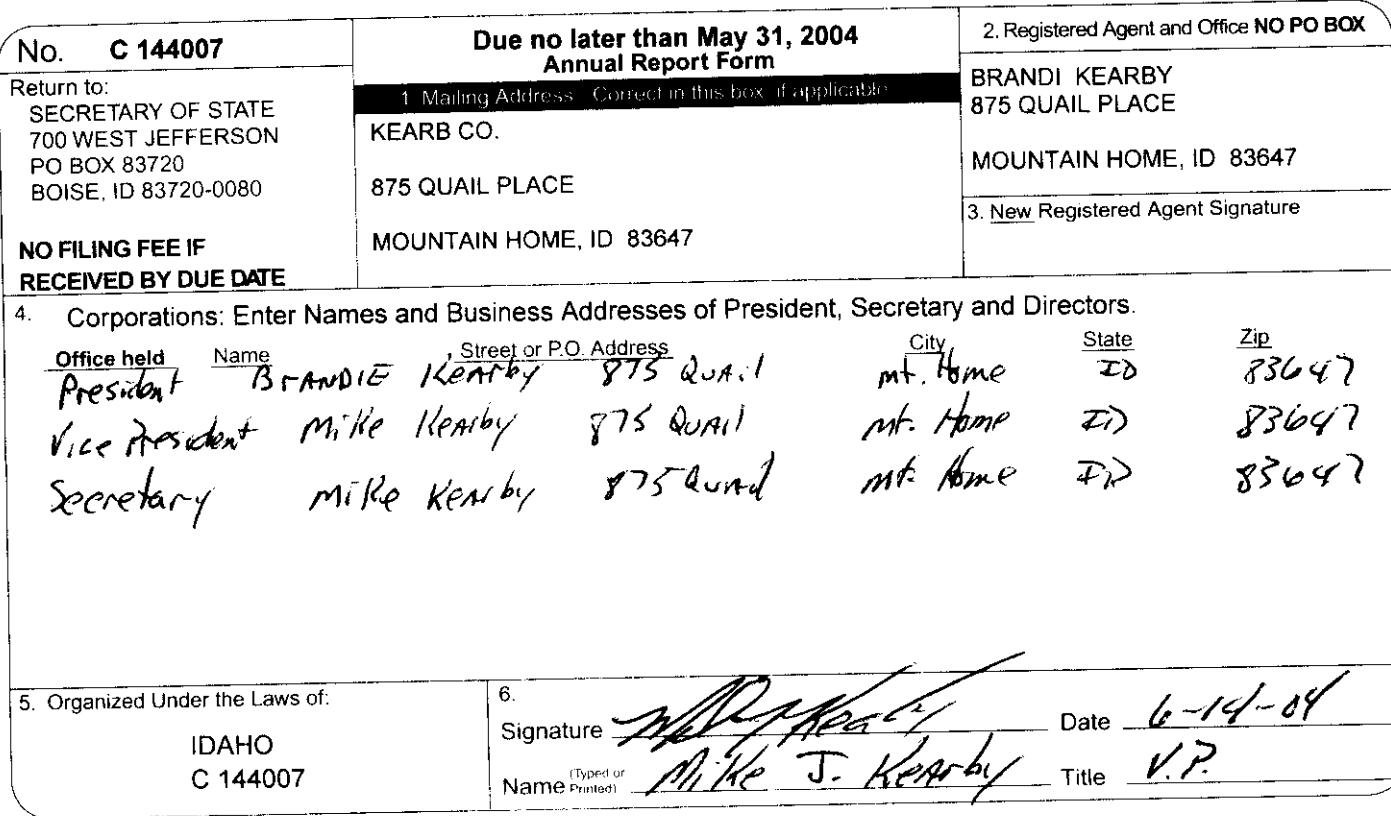 No. C 144007
Return to:
SECRETARY OF STATE
700 WEST JEFFERSON
PO BOX 83720
BOISE, ID 83720-0080
NO FILING FEE IF
RECEIVED BY DUE DATE
Due no later than May 31, 2004
Annual Report Form
1 Mailing Address Correct in this box if applicable
KEARB CO.
875 QUAIL PLACE
MOUNTAIN HOME, ID 83647
2. Registered Agent and Office NO PO BOX
BRANDI KEARBY
875 QUAIL PLACE
MOUNTAIN HOME, ID 83647
3. New Registered Agent Signature
4. Corporations: Enter Names and Business Addresses of President, Secretary and Directors.
Office held Name Street or P.O. Address City State Zip
President BRANDIE Kearby 875 Quail mt. Home ID 83647
Vice President Mike Kearby 875 Quail mt. Home ID 83647
Secretary Mike Kearby 875 Quail mt. Home ID 83647
5. Organized Under the Laws of:
IDAHO
C 144007
6.
Signature Kearby Date 6-14-04
Name (Typed or Printed) Mike J. Kearby Title V.P.